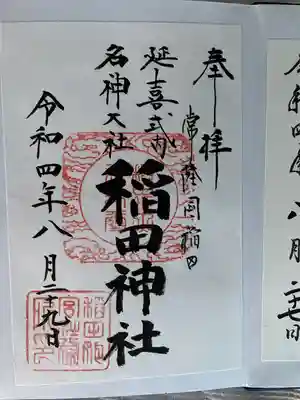 奉拝
常陸国稲田
延喜式内
名神大社
稲田神社
令和四年八月二十九日